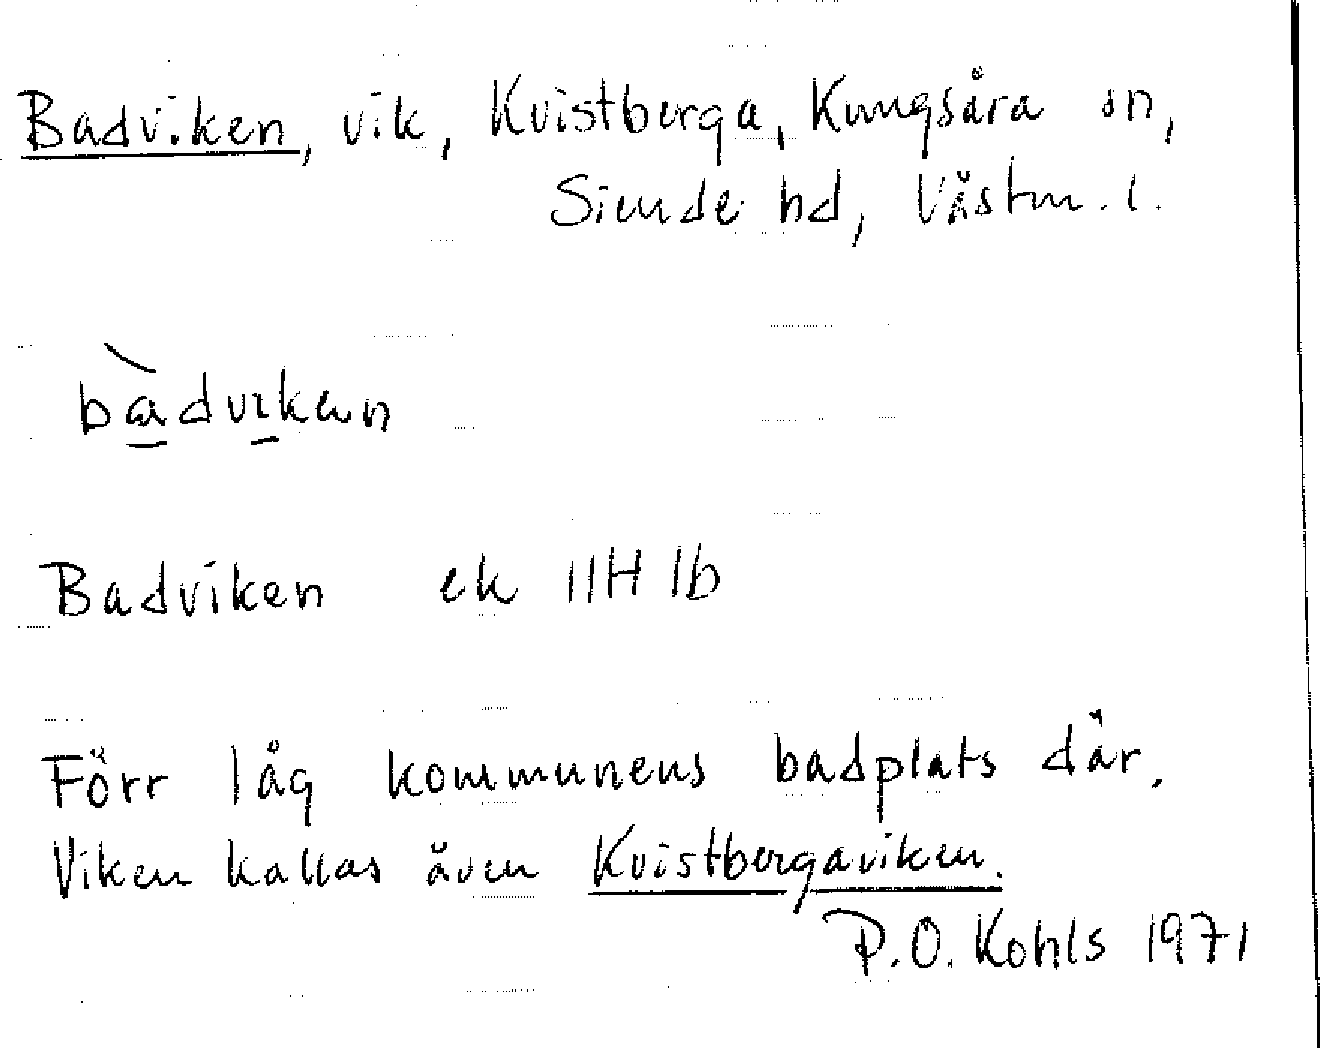 Badviken, vik, Kvistberga, Kungsåra sn,
Siende hd, Västm. l.
bàdvikæn
Badviken ek 11H 1b
Förr låg kommunens badplats där.
Viken kallas även Kvistbergaviken.
P.O. Kohls 1971